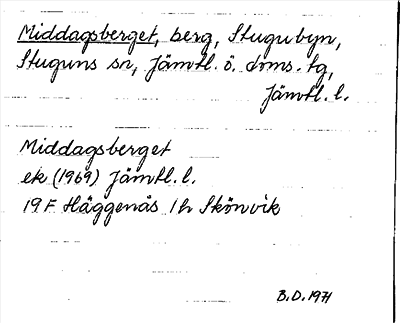 Middagsberget, berg, Stugubyn,
Stuguns sn, Jämtl. ö. doms. tg,
Jämtl. l.
Middagsberget
ek (1969) Jämtl. l.
19F Häggenås 1h Skönvik
B.D. 1971